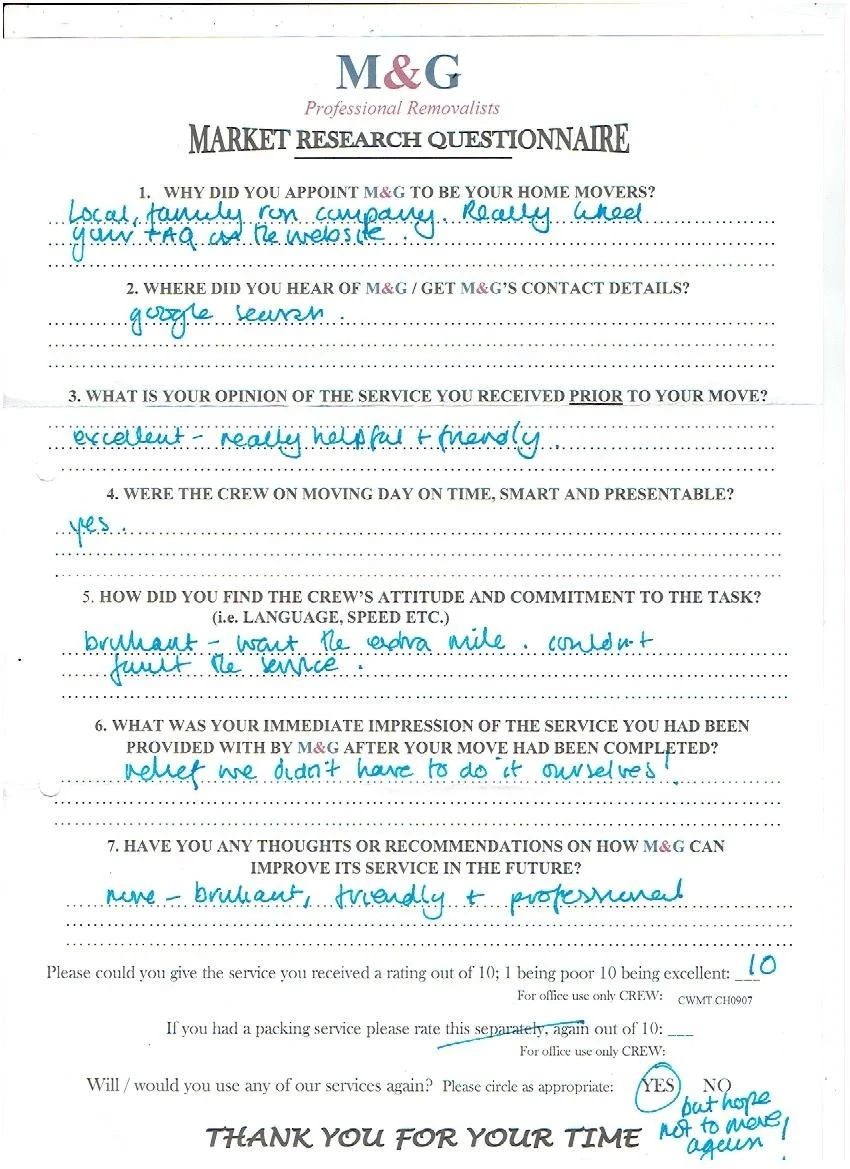 M&G
Professional Removalists
MARKET RESEARCH QUESTIONNAIRE
1. WHY DID YOU APPOINT M&G TO BE YOUR HOME MOVERS?
Local, family run company. Really liked
your FAQ on the website.
2. WHERE DID YOU HEAR OF M&G / GET M&G'S CONTACT DETAILS?
google search.
3. WHAT IS YOUR OPINION OF THE SERVICE YOU RECEIVED PRIOR TO YOUR MOVE?
excellent - really helpful + friendly.
4. WERE THE CREW ON MOVING DAY ON TIME, SMART AND PRESENTABLE?
yes.
5. HOW DID YOU FIND THE CREW'S ATTITUDE AND COMMITMENT TO THE TASK?
(i.e. LANGUAGE, SPEED ETC.)
brilliant - went the extra mile. couldn't
fault the service.
6. WHAT WAS YOUR IMMEDIATE IMPRESSION OF THE SERVICE YOU HAD BEEN
PROVIDED WITH BY M&G AFTER YOUR MOVE HAD BEEN COMPLETED?
relief we didn't have to do it ourselves!
7. HAVE YOU ANY THOUGHTS OR RECOMMENDATIONS ON HOW M&G CAN
IMPROVE ITS SERVICE IN THE FUTURE?
none - brilliant, friendly + professional
Please could you give the service you received a rating out of 10; 1 being poor 10 being excellent: 10
For office use only CREW: CWMT CH0907
If you had a packing service please rate this separately, again out of 10: ___
For office use only CREW:
Will / would you use any of our services again? Please circle as appropriate: YES NO
but hope
not to move
again!
THANK YOU FOR YOUR TIME